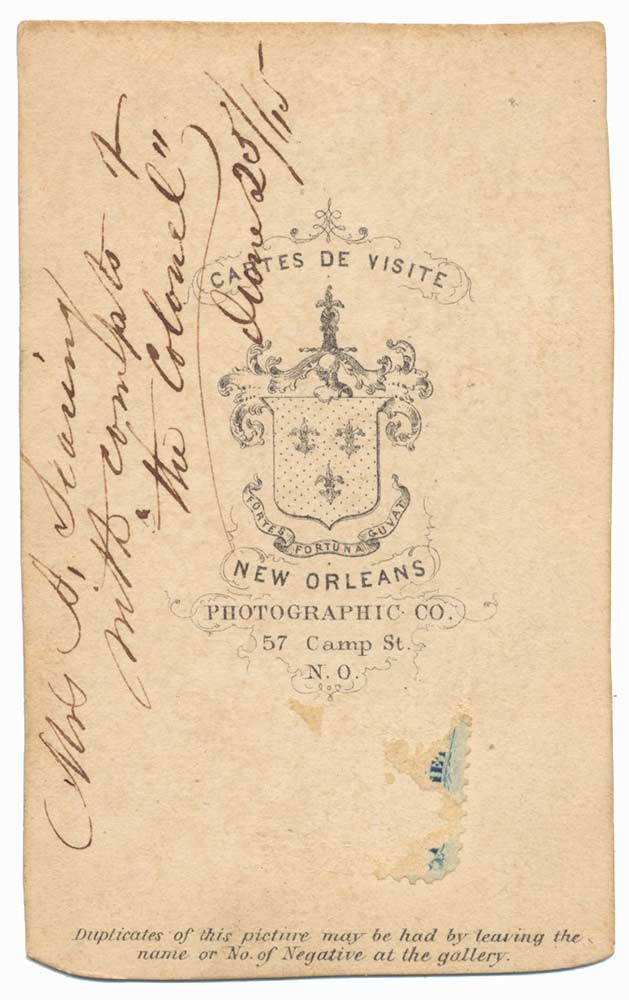 Mrs S. Searing
with compts of
"the Colonel"
June 25/65
CARTES DE VISITE
FORTES FORTUNA GUVAT
NEW ORLEANS
PHOTOGRAPHIC CO.
57 Camp St.
N. O.
Duplicates of this picture may be had by leaving the
name or No. of Negative at the gallery.